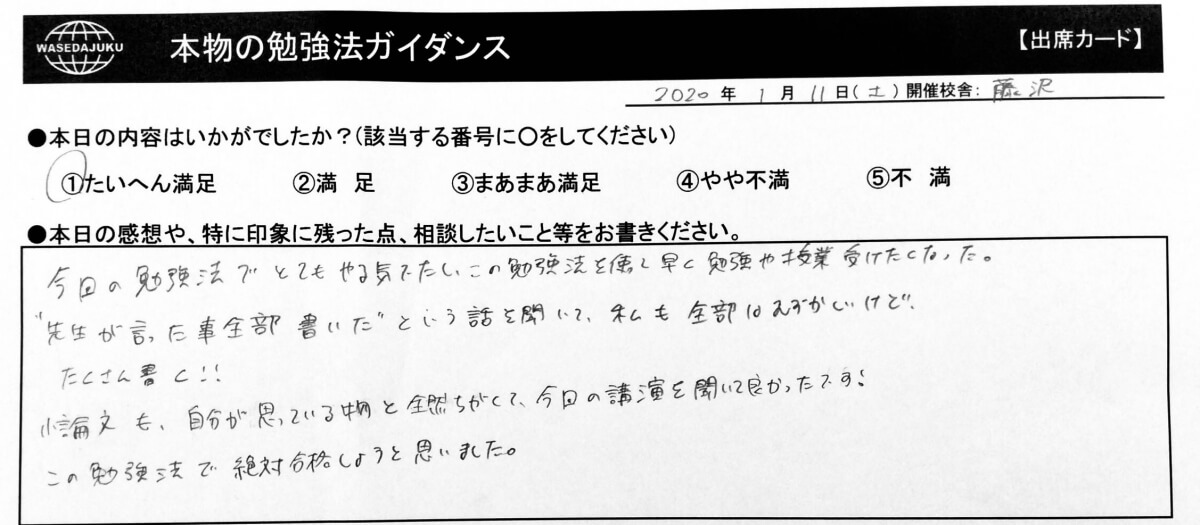 WASEDAJUKU
本物の勉強法ガイダンス
【出席カード】
2020年 1月 11日(土)開催校舎: 藤沢
●本日の内容はいかがでしたか?(該当する番号に〇をしてください)
①たいへん満足 ②満 足 ③まあまあ満足 ④やや不満 ⑤不 満
●本日の感想や、特に印象に残った点、相談したいこと等をお書きください。
今回の勉強法でとてもやる気でたし、この勉強法を使て早く勉強や授業受けたくなった。
"先生が言った事全部書いた"という話を聞いて、私も全部はむずかしいけど、
たくさん書く!!
小論文も、自分が思っている物と全然ちがくて、今回の講演を聞いて良かったです!
この勉強法で絶対合格しようと思いました。